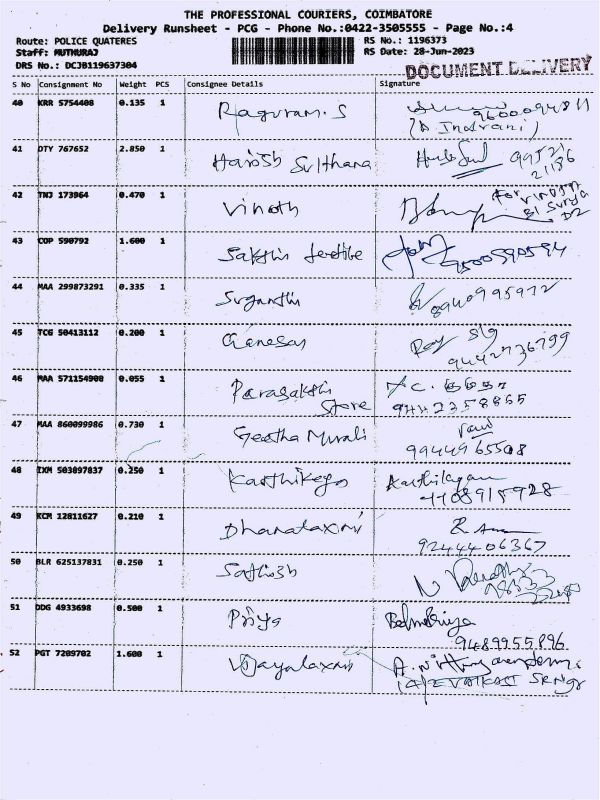 THE PROFESSIONAL COURIERS, COIMBATORE
Delivery Runsheet - PCG - Phone No.:0422-3505555 - Page No.:4
Route: POLICE QUATERES RS No.: 1196373
Staff: MUTHURAJ RS Date: 28-Jun-2023
DRS No.: DCJB119637304
DOCUMENT DELIVERY
S No Consignment No Weight PCS Consignee Details Signature
40 KRR 5754408 0.135 1 Raguram.S 9600094811
(A Indrani)
41 DTY 767652 2.850 1 Harish Sulthana 99521
21186
42 TNJ 173964 0.470 1 Vinoth For
43 COP 590792 1.600 1 Sakthi textile 9500590594
44 MAA 299873291 0.335 1 Suganthi 8940995972
45 TCG 50413112 0.200 1 Ganesan 9442736799
46 MAA 571154908 0.055 1 Parasakthi
Store 9442358865
47 MAA 860099986 0.730 1 Geetha Murali
9944965508
48 IXM 503897837 0.250 1 Karthikeyan
49 KCM 12811627 0.210 1 Dhanalaxmi
9244406367
50 BLR 625137831 0.250 1 Sathish
51 DDG 4933698 0.500 1 Priya
9489955896
52 PGT 7209702 1.600 1 Vijayalaxmi